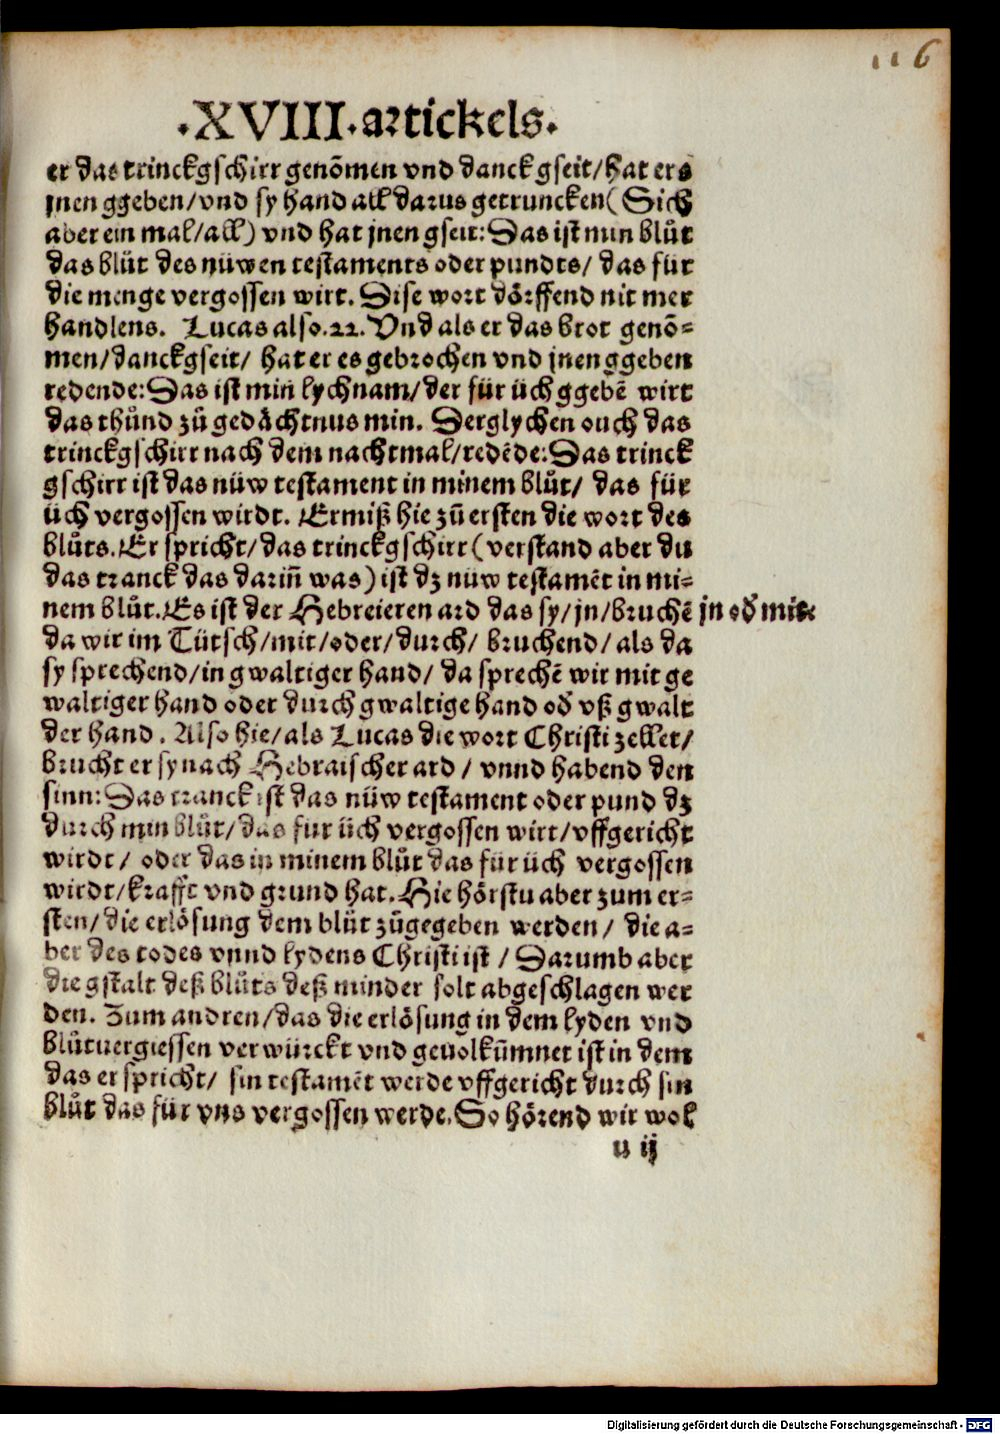 116
.XVIII.artickels.
er das trinckgschirr genōmen vnd danckgseit/hat ers
jnen ggeben/vnd sy hand all darus getruncken(Sich
aber ein mal/all) vnd hat jnen gseit:Das ist min blůt
das blůt des nüwen testaments oder pundts/ das für
die menge vergossen wirt. Dise wort dörffend nit mer
handlens. Lucas also.22.Vnd als er das brot genō-
men/danckgseit/ hat er es gebrochen vnd jnen ggeben
redende:Das ist min lychnam/der für üch ggebē wirt
das thůnd zů gedächtnus min. Derglychen ouch das
trinckgschirr nach dem nachtmal/redēde:Das trinck
gschirr ist das nüw testament in minem blůt/ das für
üch vergossen wirdt. Ermiß hie zů ersten die wort des
blůts.Er spricht/das trinckgschirr(verstand aber du
das tranck das dariñ was)ist dz nüw testamēt in mi-
nem blůt.Es ist der Hebreieren ard das sy/jn/bruchē
jn od̕ mit.
da wir im Tütsch/mit/oder/durch/ bruchend/als da
sy sprechend/in gwaltiger hand/ da sprechē wir mit ge
waltiger hand oder durch gwaltige hand od̕ vß gwalt
der hand. Also hie/als Lucas die wort Christi zellet/
brucht er sy nach Hebraischer ard/ vnnd habend den
sinn:Das tranck ist das nüw testament oder pund dz
durch min blůt/das für üch vergossen wirt/vffgericht
wirdt/ oder das in minem blůt das für üch vergossen
wirdt/krafft vnd grund hat.Hie hörstu aber zum er-
sten/die erlösung dem blůt zůgegeben werden/ die a-
ber des todes vnnd lydens Christi ist/Darumb aber
die gstalt deß blůts deß minder solt abgeschlagen wer
den. Zum andren/das die erlösung in dem lyden vnd
blůtuergiessen verwürckt vnd geuolkūmnet ist in dem
das er spricht/ sin testamēt werde vffgericht durch sin
blůt das für vns vergossen werde.So hörend wir wol
u ij
Digitalisierung gefördert durch die Deutsche Forschungsgemeinschaft - DFG